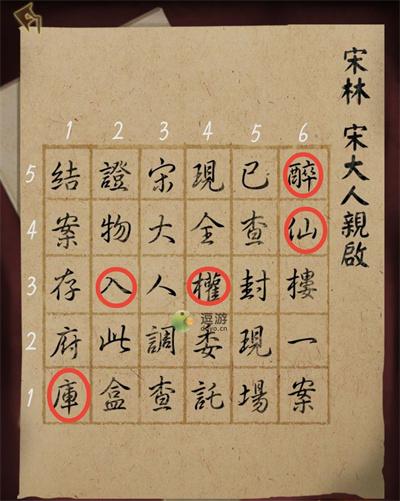 宋林 宋大人親啟
1 2 3 4 5 6
5 結 證 宋 現 已 醉
4 案 物 大 全 查 仙
3 存 入 人 權 封 樓
2 府 此 調 委 現 一
1 庫 盒 查 託 場 案
逗游
doyo.cn